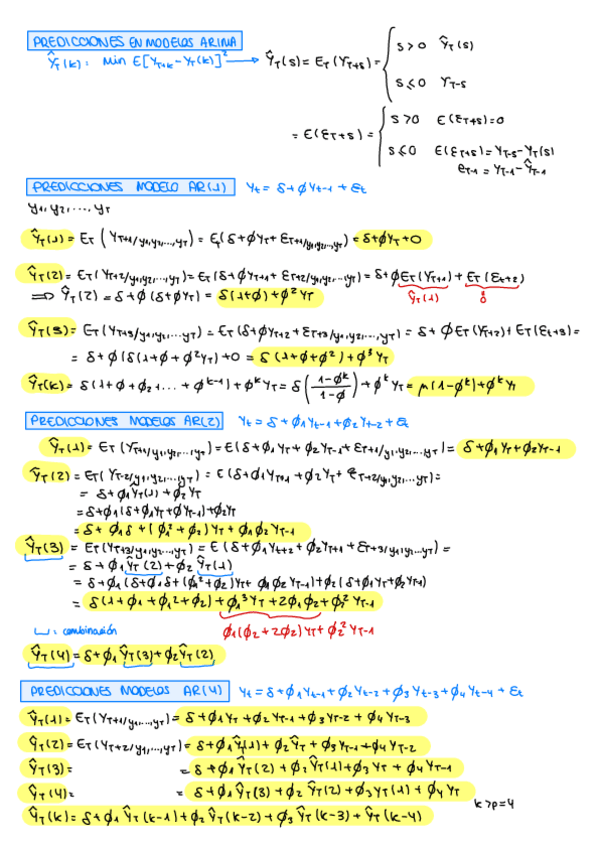 PREDICCIONES EN MODELOS ARIMA
ŶT(k): Min E[YT+k - YT(k)]² → ŶT(s) = ET(YT+s) = { s > 0 ŶT(s)
s ≤ 0 YT-s
= E(ET+s) = { s > 0 E(ET+s) = 0
s ≤ 0 E(Et+s) = YT-s - YT(s)
eT-1 = YT-1 - ŶT-1
PREDICCIONES MODELO AR(1) Yt = δ + ϕYt-1 + Et
y1, y2, ..., yT
ŶT(1) = ET(YT+1/y1,y2,...,yT) = Et(δ + ϕYT + ET+1/y1,y2,...,yT) = δ + ϕYT + 0
ŶT(2) = ET(YT+2/y1,y2,...,yT) = ET(δ + ϕYT+1 + ET+2/y1,y2,...,yT) = δ + ϕET(YT+1) + ET(Et+2)
ŶT(1) 0
⇒ ŶT(2) = δ + ϕ(δ + ϕYT) = δ(1+ϕ) + ϕ²YT
ŶT(3) = ET(YT+3/y1,y2,...,yT) = ET(δ + ϕYT+2 + ET+3/y1,y2,...,yT) = δ + ϕET(YT+2) + ET(Et+3) =
= δ + ϕ(δ(1+ϕ + ϕ²YT) + 0 = δ(1+ϕ+ϕ²) + ϕ³YT
ŶT(k) = δ(1 + ϕ + ϕ2 + ... + ϕ^k-1) + ϕ^k YT = δ((1-ϕ^k)/(1-ϕ)) + ϕ^k YT = μ(1-ϕ^k) + ϕ^k Yt
PREDICCIONES MODELOS AR(2) Yt = δ + ϕ1Yt-1 + ϕ2Yt-2 + Et
ŶT(1) = ET(YT+1/y1,y2,...,yT) = E(δ + ϕ1YT + ϕ2YT-1 + ET+1/y1,y2,...,yT) = δ + ϕ1YT + ϕ2YT-1
ŶT(2) = ET(YT-2/y1,y2,...,yT) = E(δ + ϕ1YT+1 + ϕ2YT + ET+2/y1,y2,...,yT) =
= δ + ϕ1ŶT(1) + ϕ2YT
= δ + ϕ1(δ + ϕ1YT + ϕYT-1) + ϕ2YT
= δ + ϕ1δ + (ϕ1² + ϕ2)YT + ϕ1ϕ2YT-1
ŶT(3) = ET(YT+3/y1,y2,...,yT) = E(δ + ϕ1Yt+2 + ϕ2YT+1 + ET+3/y1,y2,...,yT) =
= δ + ϕ1ŶT(2) + ϕ2ŶT(1)
= δ + ϕ1(δ + ϕ1δ + (ϕ1²+ϕ2)YT + ϕ1ϕ2YT-1) + ϕ2(δ + ϕ1YT + ϕ2YT-1)
= δ(1 + ϕ1 + ϕ1² + ϕ2) + ϕ1³YT + 2ϕ1ϕ2 + ϕ2²YT-1
⊔: combinación ϕ1(ϕ2 + 2ϕ2)YT + ϕ2²YT-1
ŶT(4) = δ + ϕ1ŶT(3) + ϕ2ŶT(2)
PREDICCIONES MODELOS AR(4) Yt = δ + ϕ1Yt-1 + ϕ2Yt-2 + ϕ3Yt-3 + ϕ4Yt-4 + Et
ŶT(1) = ET(YT+1/y1,...,yT) = δ + ϕ1YT + ϕ2YT-1 + ϕ3YT-2 + ϕ4YT-3
ŶT(2) = ET(YT+2/y1,...,yT) = δ + ϕ1ŶT(1) + ϕ2YT + ϕ3YT-1 + ϕ4YT-2
ŶT(3) = = δ + ϕ1ŶT(2) + ϕ2ŶT(1) + ϕ3YT + ϕ4YT-1
ŶT(4) = = δ + ϕ1ŶT(3) + ϕ2ŶT(2) + ϕ3YT(1) + ϕ4YT
ŶT(k) = δ + ϕ1ŶT(k-1) + ϕ2ŶT(k-2) + ϕ3ŶT(k-3) + ŶT(k-4) k > p = 4